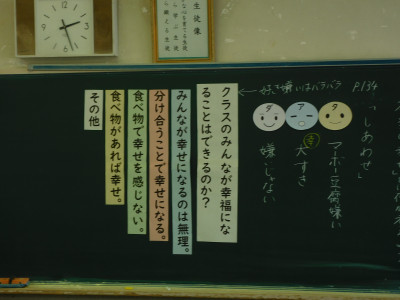 生徒像
P.134
「しあわせ」
←好き嫌いはバラバラ
タ
マーボー豆腐嫌い
ア
大すき
ダ
嫌じゃない
クラスのみんなが幸福にな
ることはできるのか？
みんなが幸せになるのは無理。
分け合うことで幸せになる。
食べ物で幸せを感じない。
食べ物があれば幸せ。
その他